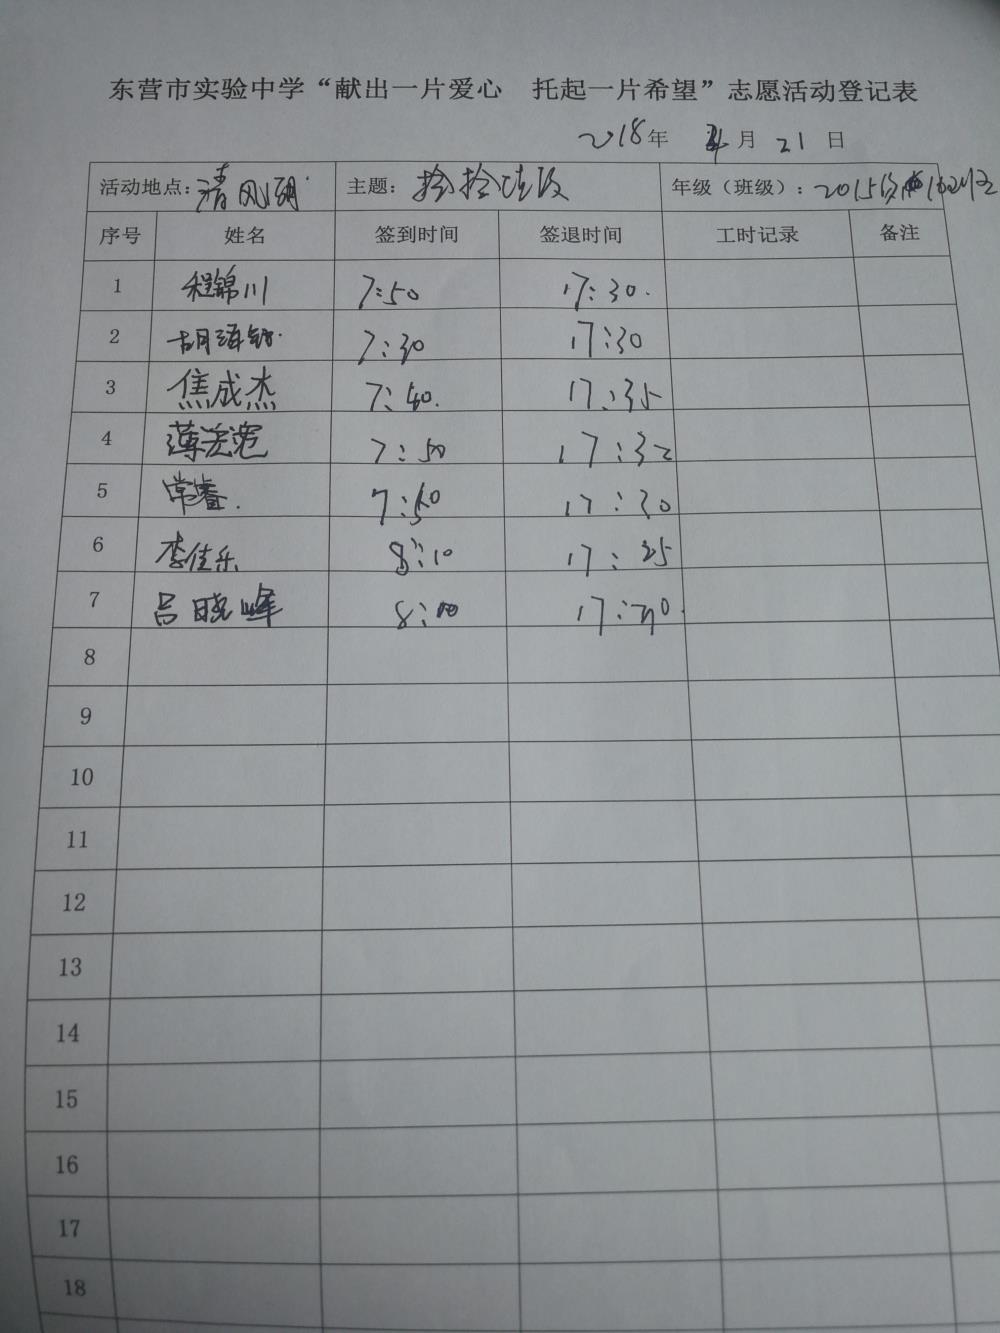 东营市实验中学“献出一片爱心 托起一片希望”志愿活动登记表
2018年 4月 21日
活动地点：清风湖 主题：捡拾垃圾 年级（班级）：2015级
序号 姓名 签到时间 签退时间 工时记录 备注
1 程锦川 7:50 17:30
2 胡 7:30 17:30
3 焦成杰 7:40 17:35
4 薄 7:50 17:32
5 常睿 7:50 17:30
6 李佳乐 8:10 17:25
7 吕晓峰 8:00
8
9
10
11
12
13
14
15
16
17
18